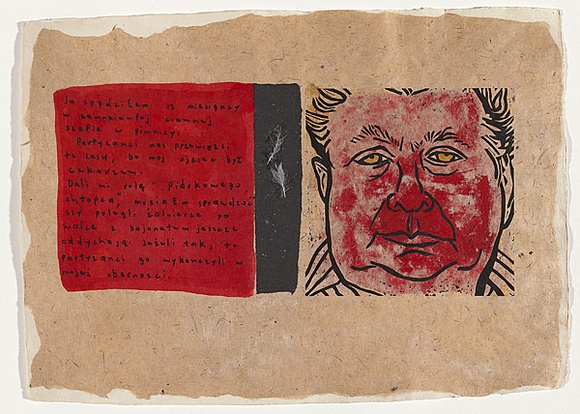 Ja spędziłem 13 miesięcy
w zamkniętej ciemnej
szafie w piwnicy.
Partyzanci nas przewieźli
to lasu, bo mój ojciec był
lekarzem.
Dali mi rolę "Piórkowego
chłopca", musiałem sprawdzać
czy polegli żołnierze po
walce z bagnetem jeszcze
oddychają. Jeżeli tak, to
partyzanci go wykończyli w
mojej obecności.